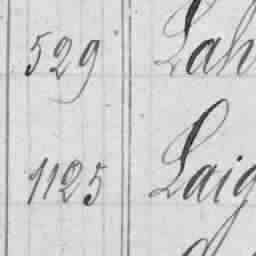 529 Lah
1125 Laig